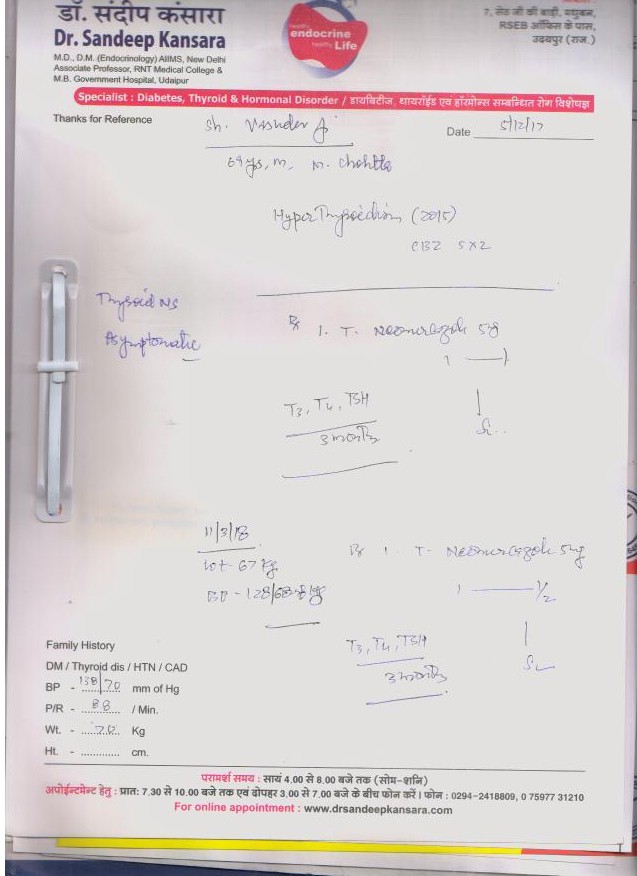 डॉ. संदीप कंसारा
Dr. Sandeep Kansara
M.D., D.M. (Endocrinology) AIIMS, New Delhi
Associate Professor, RNT Medical College &
M.B. Government Hospital, Udaipur
healthy
endocrine
healthy Life
7, सेठ जी की बाड़ी, मधुबन,
RSEB ऑफिस के पास,
उदयपुर (राज.)
Specialist : Diabetes, Thyroid & Hormonal Disorder / डायबिटीज, थायरॉईड एवं हॉरमोन्स सम्बन्धित रोग विशेषज्ञ
Thanks for Reference
Sh.
Date 5/12/17
69 yrs, m, m.
HyperThyroidism (2015)
CBZ 5x2
Thyroid NS
Asymptomatic
Rx 1. T. Neomercazole 5mg
1 — 1
T3, T4, TSH
3 months
11/3/18
wt - 67 kg
BP - 128/68
Rx 1. T- Neomercazole 5mg
1 — 1/2
T3, T4, TSH
3 months
Family History
DM / Thyroid dis / HTN / CAD
BP - 138/70 mm of Hg
P/R - 88 / Min.
Wt. - 70 Kg
Ht. - ............ cm.
परामर्श समय : सायं 4.00 से 8.00 बजे तक (सोम-शनि)
अपोईन्टमेन्ट हेतु : प्रातः 7.30 से 10.00 बजे तक एवं दोपहर 3.00 से 7.00 बजे के बीच फोन करें । फोन : 0294-2418809, 0 75977 31210
For online appointment : www.drsandeepkansara.com